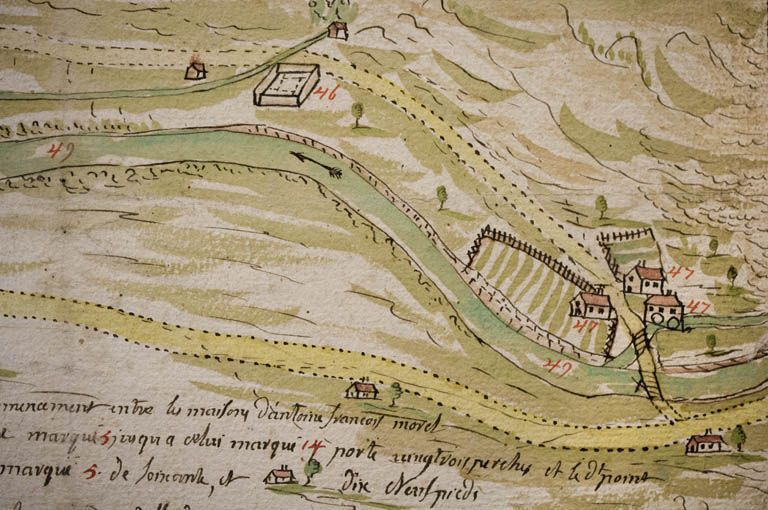 46
49
47
47
47
49
mencement entre les maisons d'antoine francois morel
marqué 5 jusqu'a celui marqué 14 porte vingt trois perches et le dt point
marqué 5. de soixante, et dix neuf pieds